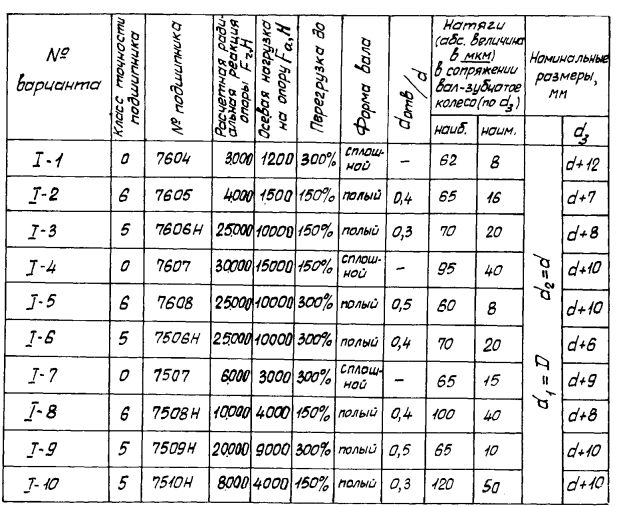 № варианта | Класс точности подшипника | № подшипника | Расчетная радиальная реакция опоры Fr,Н | Осевая нагрузка на опору Fa,Н | Перегрузка до | Форма вала | dотв/d | Натяги (абс. величина в мкм) в сопряжении вал-зубчатое колесо (по d3) | Номинальные размеры, мм
наиб. | наим. | d3
I-1 | 0 | 7604 | 3000 | 1200 | 300% | сплошной | – | 62 | 8 | d+12
I-2 | 6 | 7605 | 4000 | 1500 | 150% | полый | 0,4 | 65 | 16 | d+7
I-3 | 5 | 7606Н | 25000 | 10000 | 150% | полый | 0,3 | 70 | 20 | d+8
I-4 | 0 | 7607 | 30000 | 15000 | 150% | сплошной | – | 95 | 40 | d+10
I-5 | 6 | 7608 | 25000 | 10000 | 300% | полый | 0,5 | 60 | 8 | d+10
I-6 | 5 | 7506Н | 25000 | 10000 | 300% | полый | 0,4 | 70 | 20 | d+6
I-7 | 0 | 7507 | 6000 | 3000 | 300% | сплошной | – | 65 | 15 | d+9
I-8 | 6 | 7508Н | 10000 | 4000 | 150% | полый | 0,4 | 100 | 40 | d+8
I-9 | 5 | 7509Н | 20000 | 9000 | 300% | полый | 0,5 | 65 | 10 | d+10
I-10 | 5 | 7510Н | 8000 | 4000 | 150% | полый | 0,3 | 120 | 50 | d+10
d1=D d2=d